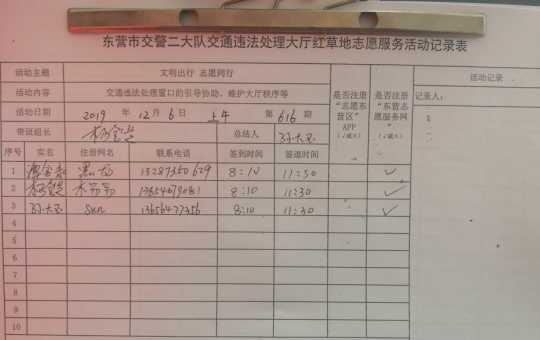 东营市交警二大队交通违法处理大厅红草地志愿服务活动记录表
活动主题 文明出行 志愿同行
活动内容 交通违法处理窗口的引导协助、维护大厅秩序等
活动日期 2019 年 12 月 6 日 上午 第 616 期
带班组长 总结人 孙大玉
是否注册“志愿东营区”APP（√或×）
是否注册“东营志愿服务网”（√或×）
活动记录
记录人：
序号 实名 注册网名 联系电话 签到时间 签退时间
1 黑龙 13287350629 8:10 11:30 ✓
2 13854679081 8:10 11:30 ✓
3 孙大玉 sun 13656477356 8:10 11:30 ✓
4
5
6
7
8
9
10